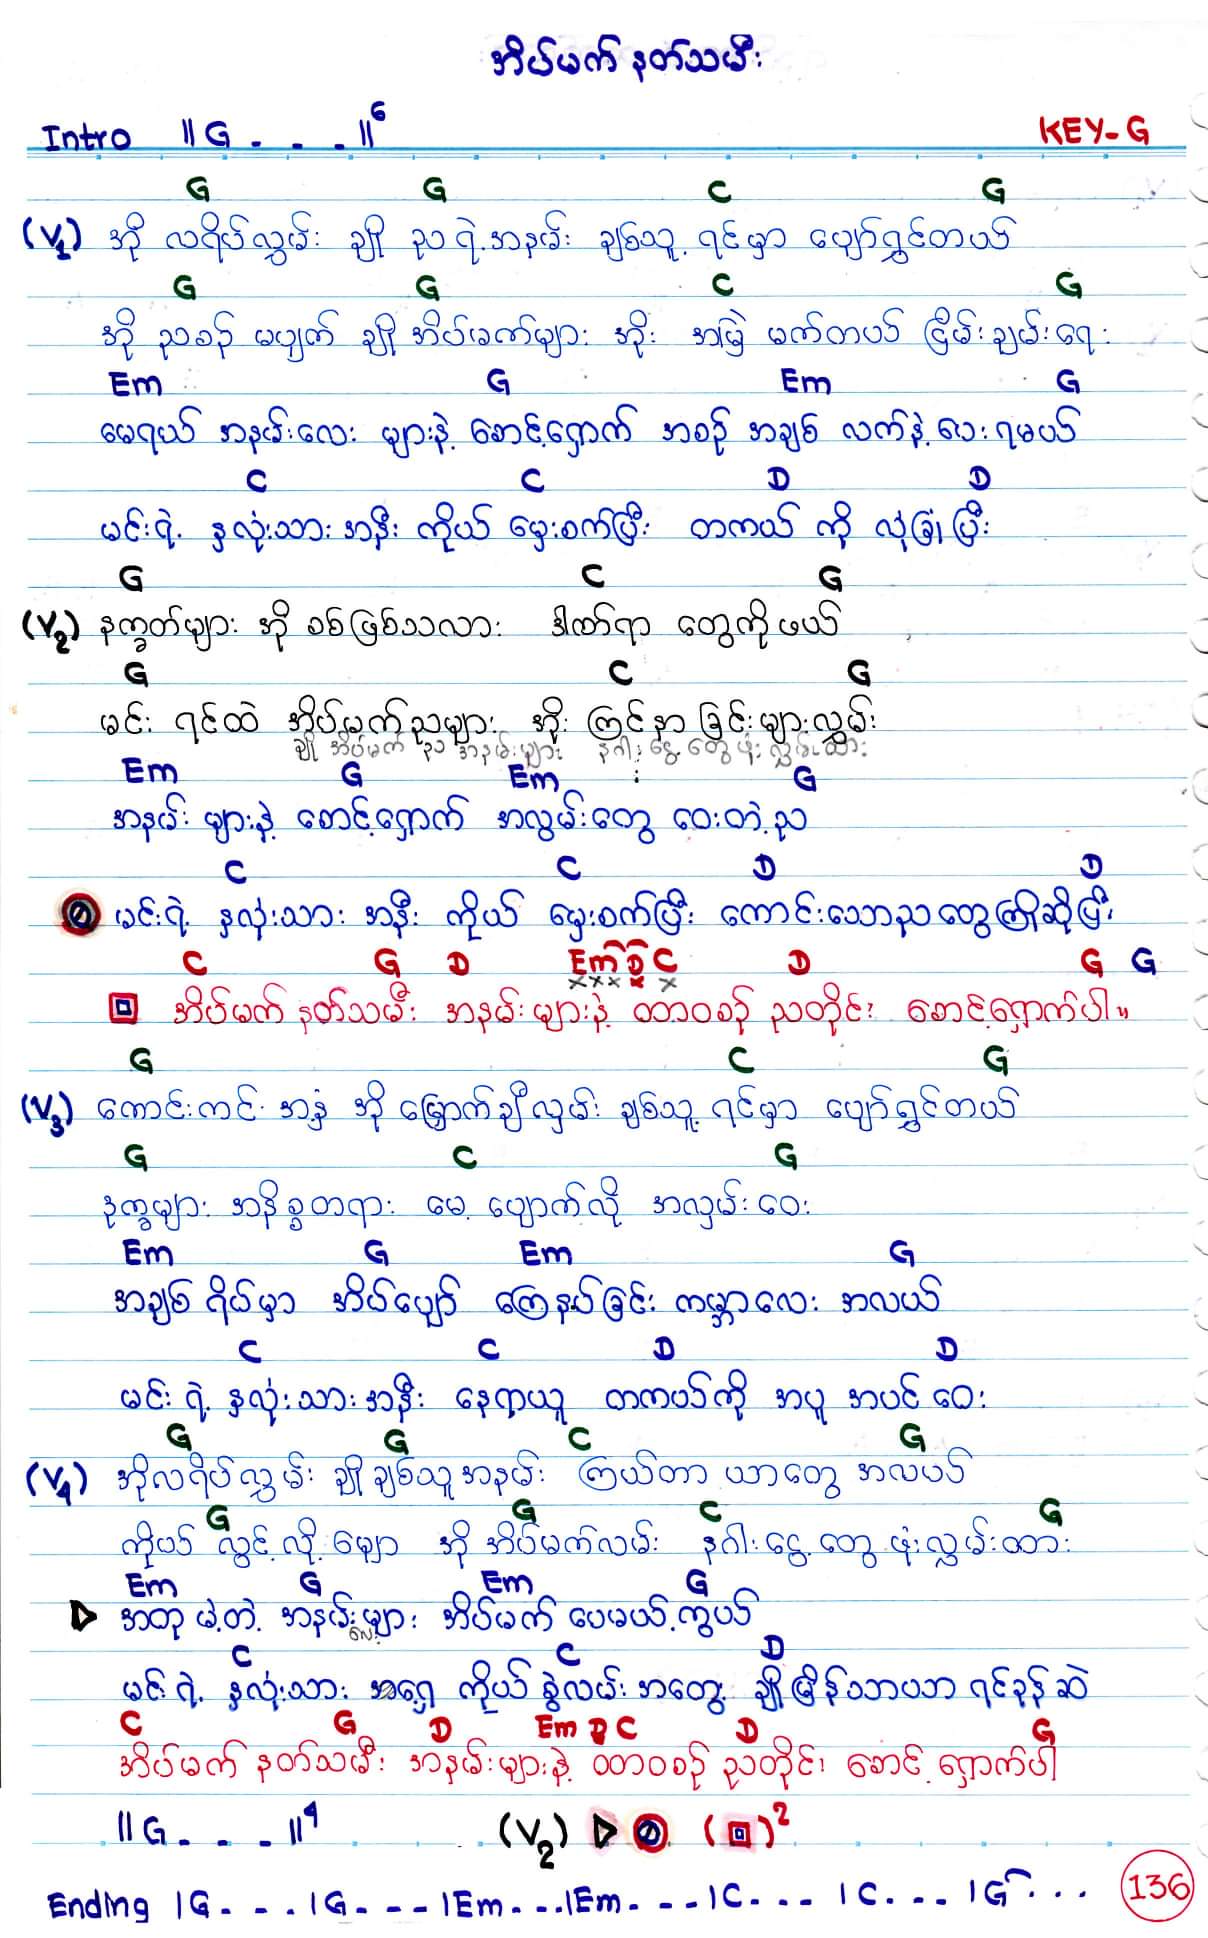 အိပ်မက် နတ်သမီး
Intro ||G . . . .||6 KEY-G
G G C G
(V1) အို လရိပ်လွှမ်း ချို ည ရဲ့ အနမ်း ချစ်သူ့ ရင်မှာ ပျော်ရွှင်တယ်
G G C G
အို ညစဉ် မပျက် ချို အိပ်မက်များ အိုး အမြဲ မက်တယ် ငြိမ်းချမ်းရေး
Em G Em G
မေရယ် အနမ်းလေး များနဲ့ စောင့်ရှောက် အစဉ် အချစ် လက်နဲ့ ပေးရမယ်
C C D D
မင်းရဲ့ နှလုံးသား အနီး ကိုယ် မှေးစက်ပြီး တကယ် ကို လုံခြုံပြီး
G C G
(V2) နက္ခတ်များ အို စစ်ဖြစ်သလား ဒါဏ်ရာ တွေကိုဖယ်
G C G
မင်း ရင်ထဲ အိပ်မက်ညများ အိုး ကြင်နာ ခြင်းများလွှမ်း
ချို အိပ်မက် ည အနမ်းများ နဂါး ငွေ့တွေ ဖုံး လွှမ်းထား
Em G Em G
အနမ်း များနဲ့ စောင့်ရှောက် အလွမ်းတွေ ဝေးတဲ့ည
C C D D
မင်းရဲ့ နှလုံးသား အနီး ကိုယ် မှေးစက်ပြီး ကောင်းသောညတွေကြိုဆိုပြီး
C G D Em D C D G G
xxx x x
အိပ်မက် နတ်သမီး အနမ်းများနဲ့ ထာဝစဉ် ညတိုင်း စောင့်ရှောက်ပါ။
G C G
(V3) ကောင်းကင် အနှံ့ အို မြှောက်ချီလှမ်း ချစ်သူ့ ရင်မှာ ပျော်ရွှင်တယ်
G C G
ဒုက္ခများ အနိစ္စတရား မေ့ ပျောက်လို့ အလှမ်းဝေး
Em G Em G
အချစ် ရိပ်မှာ အိပ်ပျော် ကြေနပ်ခြင်း ကမ္ဘာလေး အလယ်
C C D D
မင်း ရဲ့ နှလုံးသားအနီး နေရာယူ တကယ်ကို အပူ အပင် ဝေး
G G C G
(V4) အိုလရိပ်လွှမ်း ချို ချစ်သူအနမ်း ကြယ်တာ ယာတွေ အလယ်
G G C G
ကိုယ် လွင့်လို့ မျော အို အိပ်မက်လမ်း နဂါးငွေ့တွေ ဖုံးလွှမ်းထား
Em G Em G
အတု မဲ့တဲ့ အနမ်းများ အိပ်မက် ပေမယ့်ကွယ်
လေး
C C D
မင်းရဲ့ နှလုံးသား အရှေ့ ကိုယ် ခွဲလမ်းအတွေး ချိုမြိန်သာယာ ရင်ခုန်ဆဲ
C G D Em D C D G
အိပ်မက် နတ်သမီး အနမ်းများနဲ့ ထာဝစဉ် ညတိုင်း စောင့်ရှောက်ပါ
||G . . . .||4 (V2) ▷ (▣)2
Ending |G . . . |G . . . |Em . . . |Em . . . |C . . . |C . . . |G . . . 136